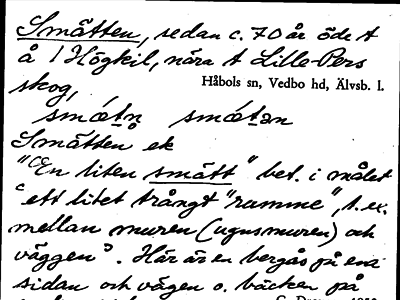 Smätten, sedan c. 70 år öde t
å 1 Högkil, nära t Lille-Pers
skog,
Håbols sn, Vedbo hd, Älvsb. l.
smætn̥ smætən
Smätten ek
"En liten smätt" bet. i målet
"ett litet trångt "rumme", t. ex.
mellan muren (ugnsmuren) och
väggen". Här är en bergås på ena
sidan och vägen o. bäcken på